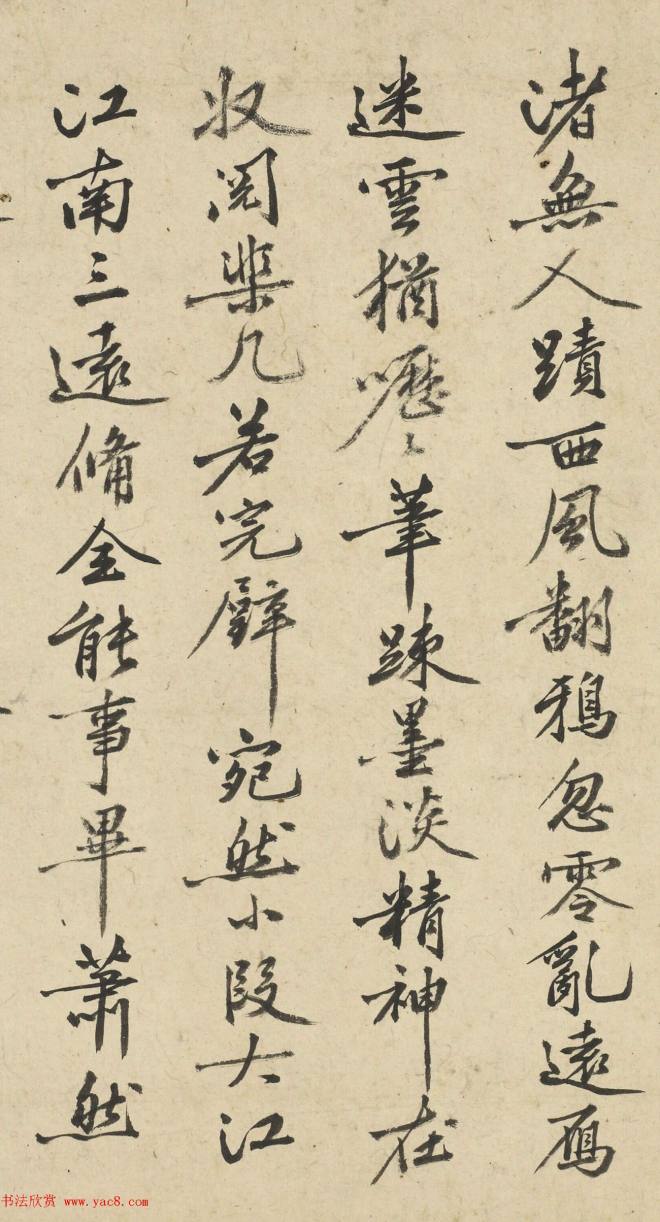 渚無人蹟西風翻鴉忽零亂遠鴈
迷雲猶嚦〻筆踈墨淡精神在
収閱棐几若完璧宛然小段大江
江南三遠備全能事畢蕭然
书法欣赏 www.yac8.com